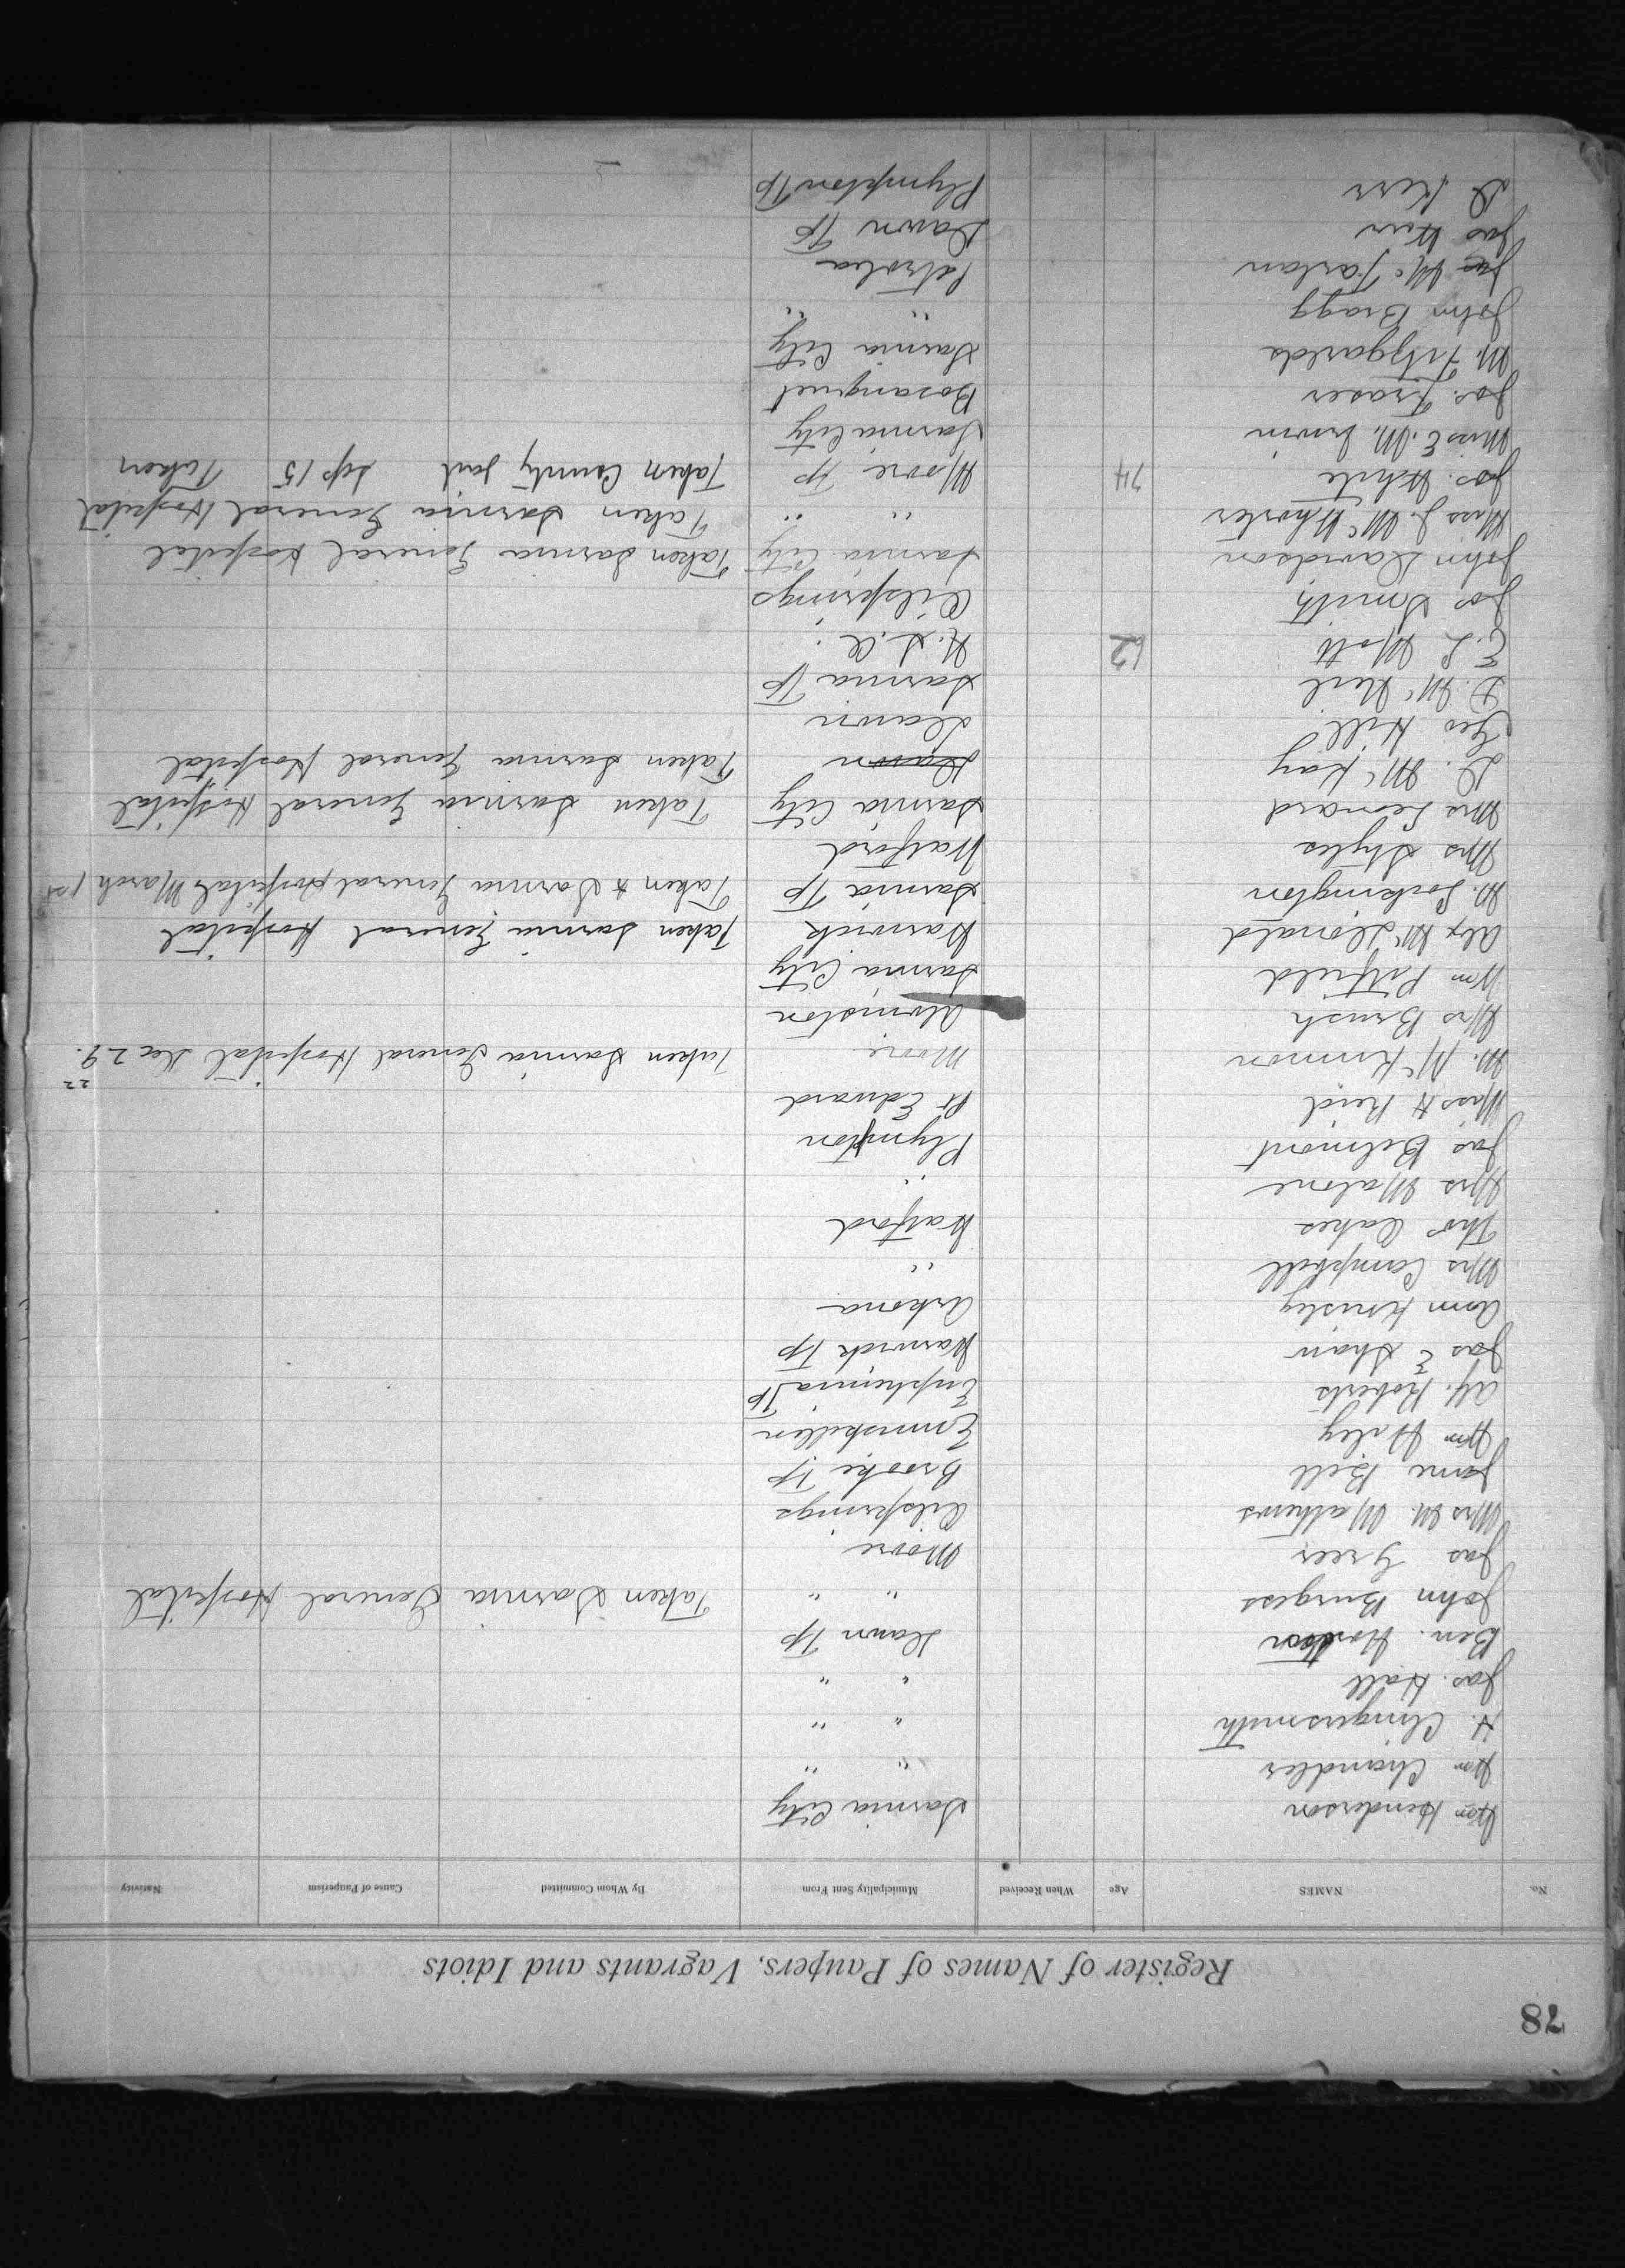 78
Register of Names of Paupers, Vagrants and Idiots
No. NAMES Age When Received Municipality Sent From By Whom Committed Cause of Pauperism Nativity
Wm Henderson Sarnia City
Wm Chandler " "
H. Clingersmith " "
Jas. Hall " "
Ben. Dawn Tp
John Burgess " " Taken Sarnia General Hospital
Jas Greer Moore
Mrs M. Mathews Oilsprings
Jane Bell Brooke Tp
Wm Haley Enniskillen
Alf. Roberts Euphemia Tp
Jas E Shaw Warwick Tp
Ann Arkona
Mrs Campbell "
Thos Oakes Watford
Mrs Malone "
Jas Belmont Plympton
Miss H Reid Pt Edward
M. McKinnon Moore Taken Sarnia General Hospital Dec 29. 22
Mrs Brush Alvinston
Wm Pitfield Sarnia City
Alex McDonald Warwick Taken Sarnia General Hospital
M. Lockington Sarnia Tp Taken to Sarnia General Hospital March 1st
Mrs Styles Watford
Mrs Leonard Sarnia City Taken Sarnia General Hospital
D. McKay Dawn Taken Sarnia General Hospital
Geo Hill Dawn
D. McNeil Sarnia Tp
E. L Mott 62 U.S.A.
Jos Smith Oilsprings
John Davidson Sarnia City Taken Sarnia General Hospital
Miss J. McWhorter " " Taken Sarnia General Hospital
Jos. White 74 Moore Tp Taken County Jail Sep 15 Taken
Miss E. M. Irwin Sarnia City
Jos. Fraser Bosanquet
M. Fitzgarlds Sarnia City
John Bragg " "
Jas McFarlan Petrolea
Jas Kerr Dawn Tp
D Kerr Plympton Tp